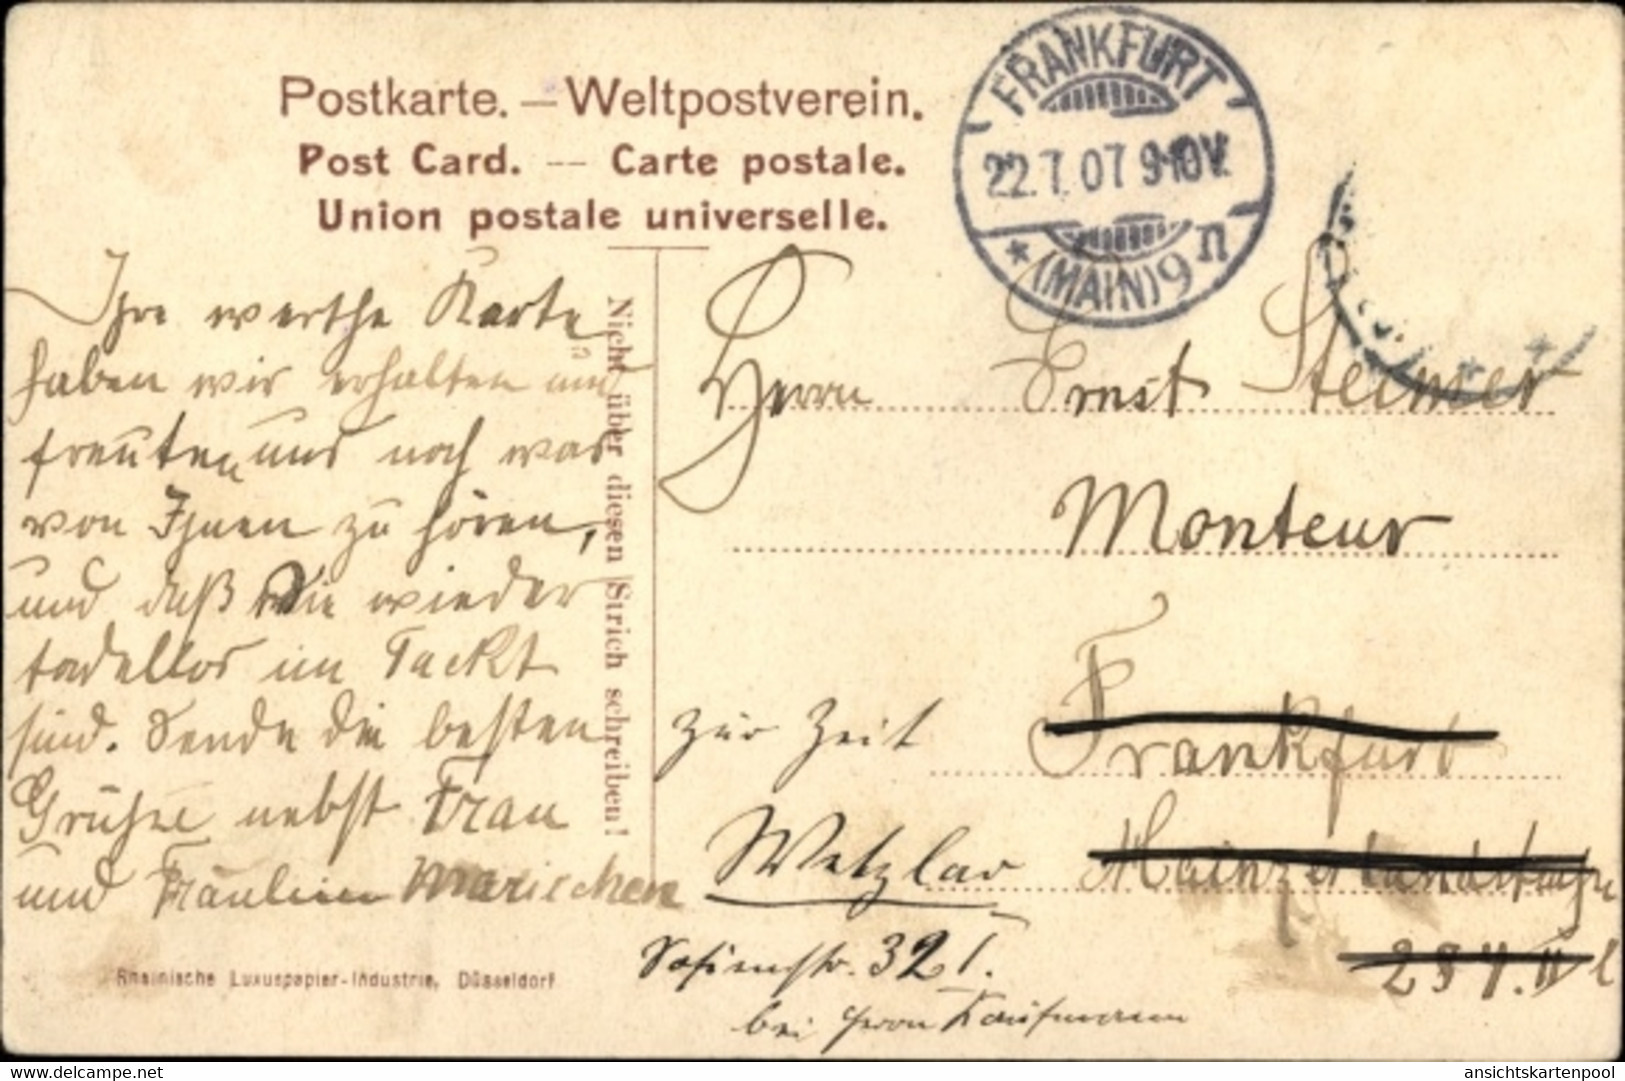 Postkarte. — Weltpostverein.
Post Card. -- Carte postale.
Union postale universelle.
FRANKFURT
22.7.07 9-10V.
* (MAIN) 9 n
Ihre werthe Karte
haben wir erhalten und
freuten uns noch was
von Ihnen zu hören,
und daß Sie wieder
tadellos im Tackt
sind. Sende die besten
Grüße nebst Frau
und Fräulein Mariechen
Nicht über diesen Strich schreiben!
Herrn Ernst Steimer
Monteur
zur Zeit Frankfurt
Wetzlar Mainzerlandstraße
234. II l
Sofienstr. 32 I.
bei Herrn Kaufmann
Rheinische Luxuspapier-Industrie, Düsseldorf
delcampe.net
ansichtskartenpool